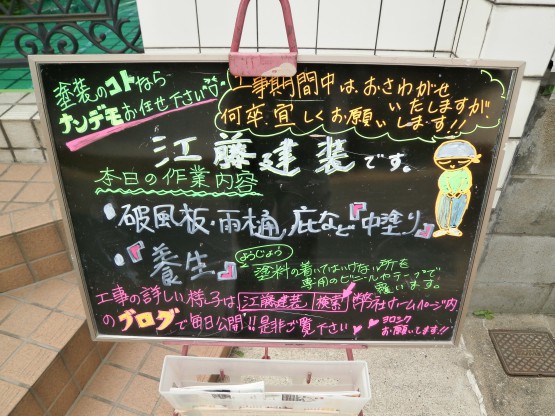 塗装のコトなら
ナンデモお任せ下さい
工事期間中は、おさわがせ
いたしますが、
何卒、宜しくお願いします!!
江藤建装です。
本日の作業内容
・破風板・雨樋、庇など『中塗り』
・『養生』
ようじょう
塗料の着いてはいけない所を
専用のビニールやテープで
覆います。
工事の詳しい様子は 江藤建装 検索 弊社ホームページ内
のブログで毎日公開!!是非ご覧下さい
ヨロシク
お願いします!!